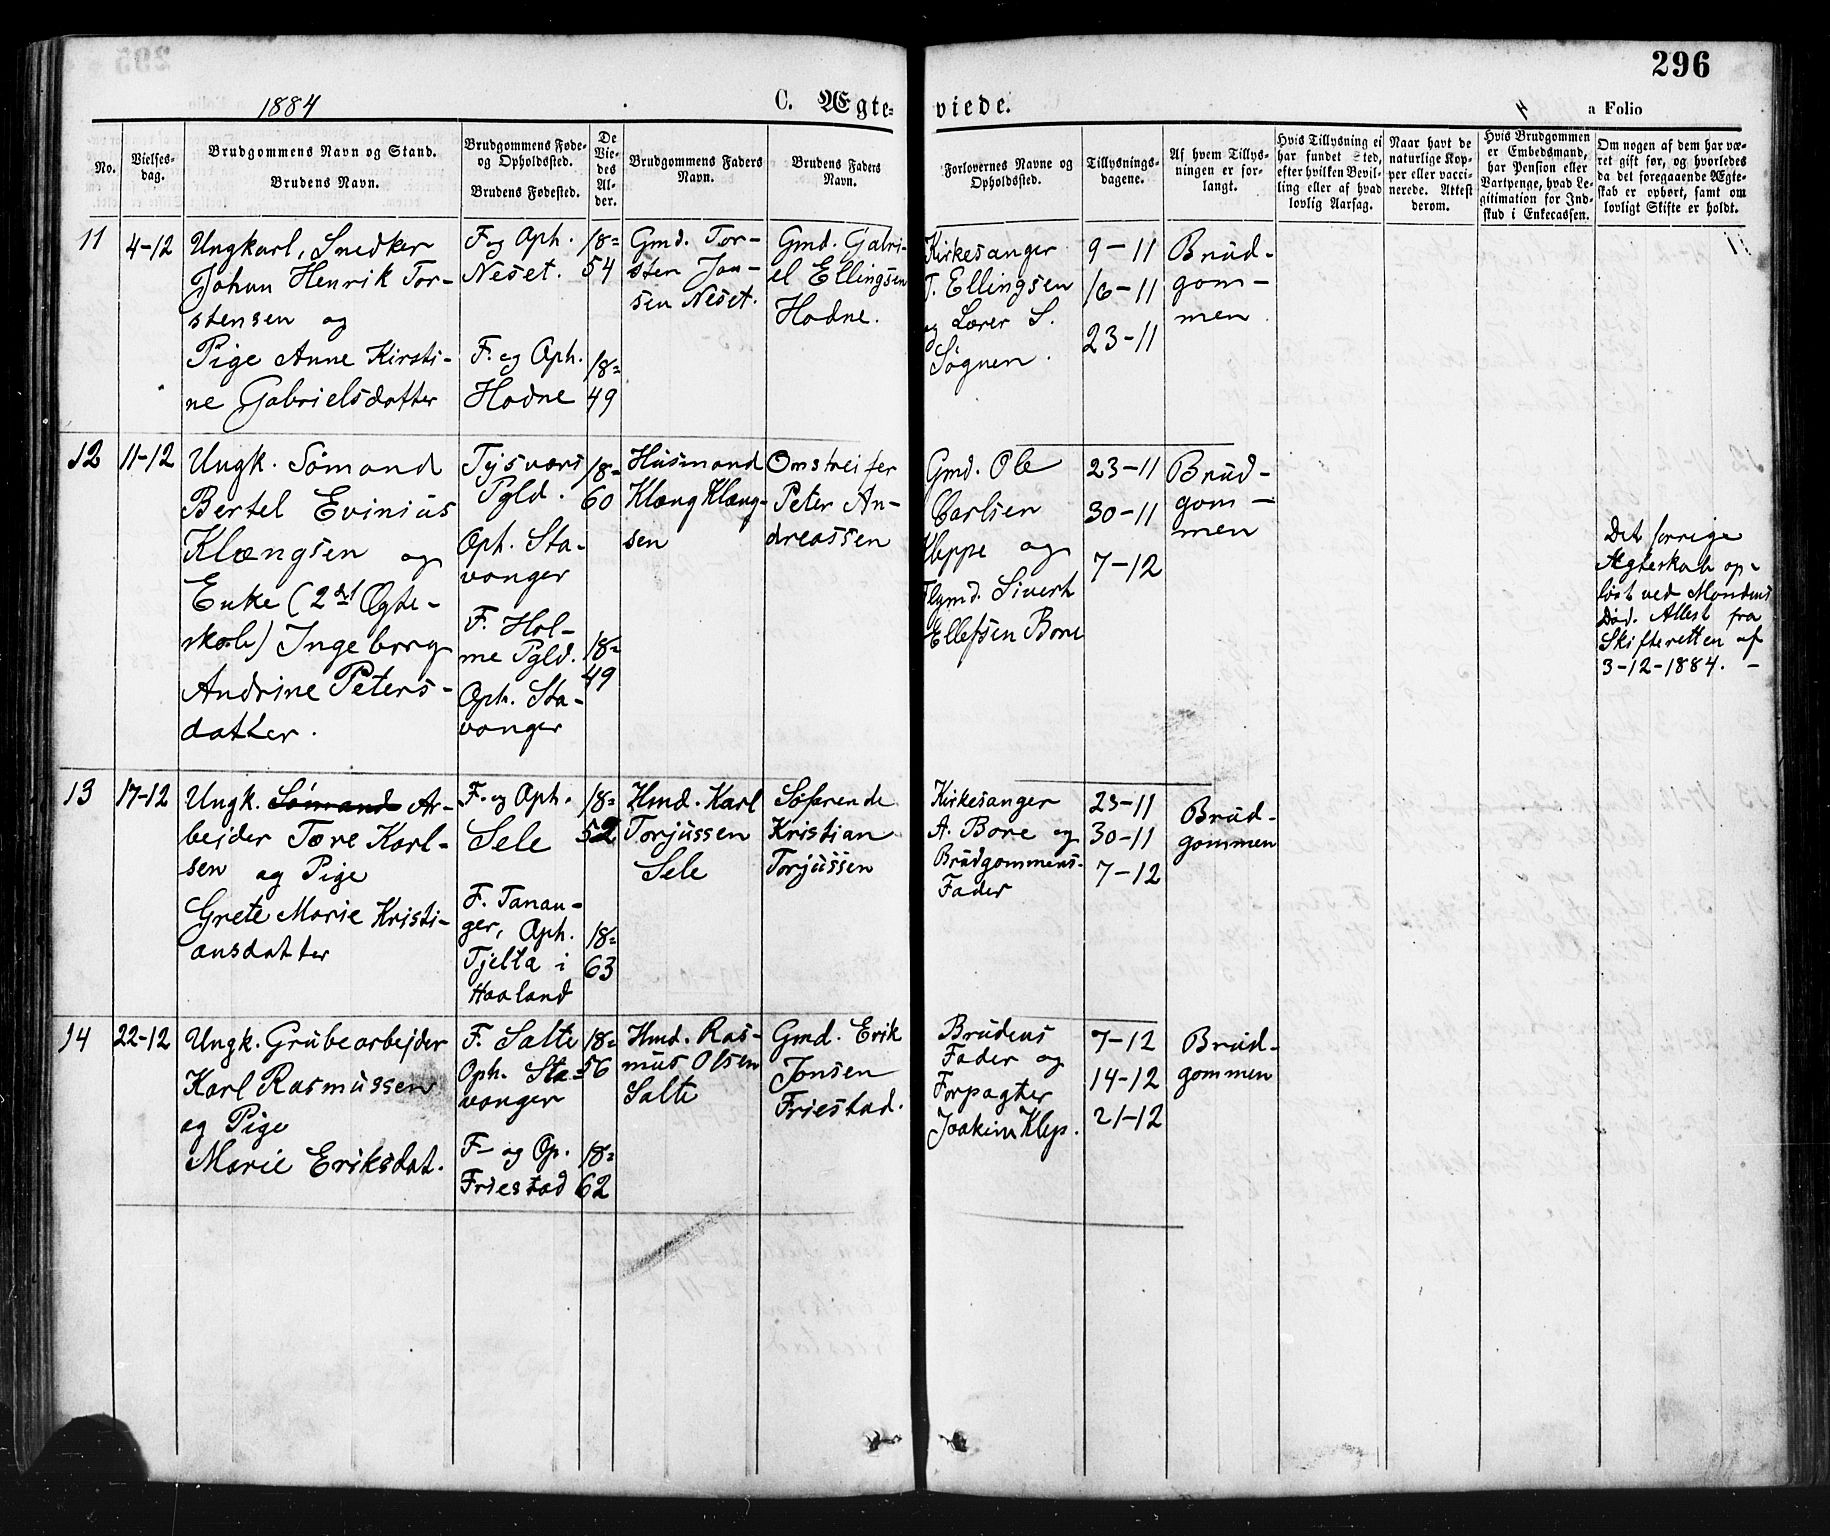 296
1884
C. Ægte-
viede.
a Folio
No.
Vielses-
dag.
Brudgommens Navn og Stand.
Brudens Navn.
Brudgommens Føde-
og Opholdssted.
Brudens Fødested.
De
Vie-
des
Al-
der.
Brudgommens Faders
Navn.
Brudens Faders
Navn.
Forlovernes Navne og
Opholdssted.
Tillysnings-
dagene.
Af hvem Tillys-
ningen er for-
langt.
Hvis Tillysning ei
har fundet Sted,
efter hvilken Bevil-
ling eller af hvad
lovlig Aarsag.
Naar havt de
naturlige Kop-
per eller vacci-
nerede. Attest
derom.
Hvis Brudgommen
er Embedsmand,
har Pension eller
Vartpenge, hvad Le-
gitimation for Ind-
skud i Enkecassen.
Om nogen af dem har væ-
ret gift før, og hvorledes
da det foregaaende Ægte-
skab er ophørt, samt om
lovligt Skifte er holdt.
11
4-12
Ungkarl, Snedker
Johan Henrik Tor-
stensen og
Pige Anne Kirsti-
ne Gabrielsdatter
F. og Oph.
Neset.
F. og Oph.
Hodne
18=
54
18=
49
Gmd. Tor-
sten Jon-
sen Neset.
Gmd. Gabri-
el Ellingsen
Hodne.
Kirkesanger
T. Ellingsen
og Lærer S.
Sognen.
9-11
16-11
23-11
Brud-
gom-
men
12
11-12
Ungk. Sømand
Bertel Evinius
Klængsen og
Enke (2det Ægte-
skab) Ingeborg
Andrine Peters-
datter.
Tysvær
Pgld.
Oph. Sta-
vanger
F. Hol-
me Pgld.
Oph. Sta-
vanger
18=
60
18=
49
Husmand
Klæng Klæng-
sen
Omstreifer
Peter An-
dreassen
Gmd. Ole
Carlsen
Kleppe og
Flgmd. Sivert
Ellefsen Bore
23-11
30-11
7-12
Brud-
gom-
men
Det forrige
Ægteskab op-
løst ved Mandens
Død. Attest fra
Skifteretten af
3-12-1884. -
13
17-12
Ungk. Sømand Ar-
bejder Tore Karl-
sen og Pige
Grete Marie Kristi-
ansdatter
F. og Oph.
Sele
F. Tanan-
ger, Oph.
Tjelta i
Haaland
18=
52
18=
63
Hmd. Karl
Torjussen
Sele
Søfarende
Kristian
Torjussen
Kirkesanger
A. Bore og
Brudgommens-
Fader
23-11
30-11
7-12
Brud-
gommen
14
22-12
Ungk. Grubearbejder
Karl Rasmussen
og Pige
Marie Eriksdat.
F. Salte
Oph. Sta-
vanger
F- og Op.
Friestad
18=
56
18=
62
Hmd. Ras-
mus Olsen
Salte
Gmd. Erik
Jonsen
Friestad.
Brudens
Fader og
Forpagter
Joakim Klep.
7-12
14-12
21-12
Brud-
gommen